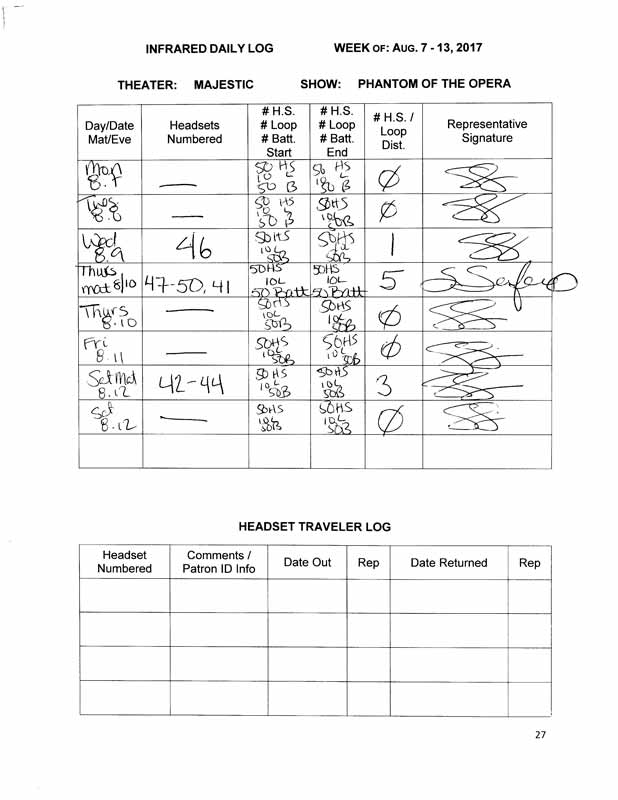 INFRARED DAILY LOG WEEK OF: AUG. 7 - 13, 2017
THEATER: MAJESTIC SHOW: PHANTOM OF THE OPERA
Day/Date Mat/Eve Headsets Numbered # H.S. # Loop # Batt. Start # H.S. # Loop # Batt. End # H.S. / Loop Dist. Representative Signature
Mon 8.7 — 50 HS 10 L 50 B 50 HS 10 L 50 B Ø
Tues 8.8 — 50 HS 10 L 50 B 50HS 10L 50B Ø
Wed 8.9 46 50HS 10L 50B 50HS 10L 50B 1
Thurs mat 8/10 47-50, 41 50HS 10L 50 Batt 50HS 10L 50 Batt 5
Thurs 8.10 — 50HS 10L 50B 50HS 10L 50B Ø
Fri 8.11 — 50HS 10L 50B 50HS 10L 50B Ø
Sat Mat 8.12 42-44 50 HS 10L 50B 50HS 10L 50B 3
Sat 8.12 — 50HS 10L 50B 50HS 10L 50B Ø
HEADSET TRAVELER LOG
Headset Numbered Comments / Patron ID Info Date Out Rep Date Returned Rep
27